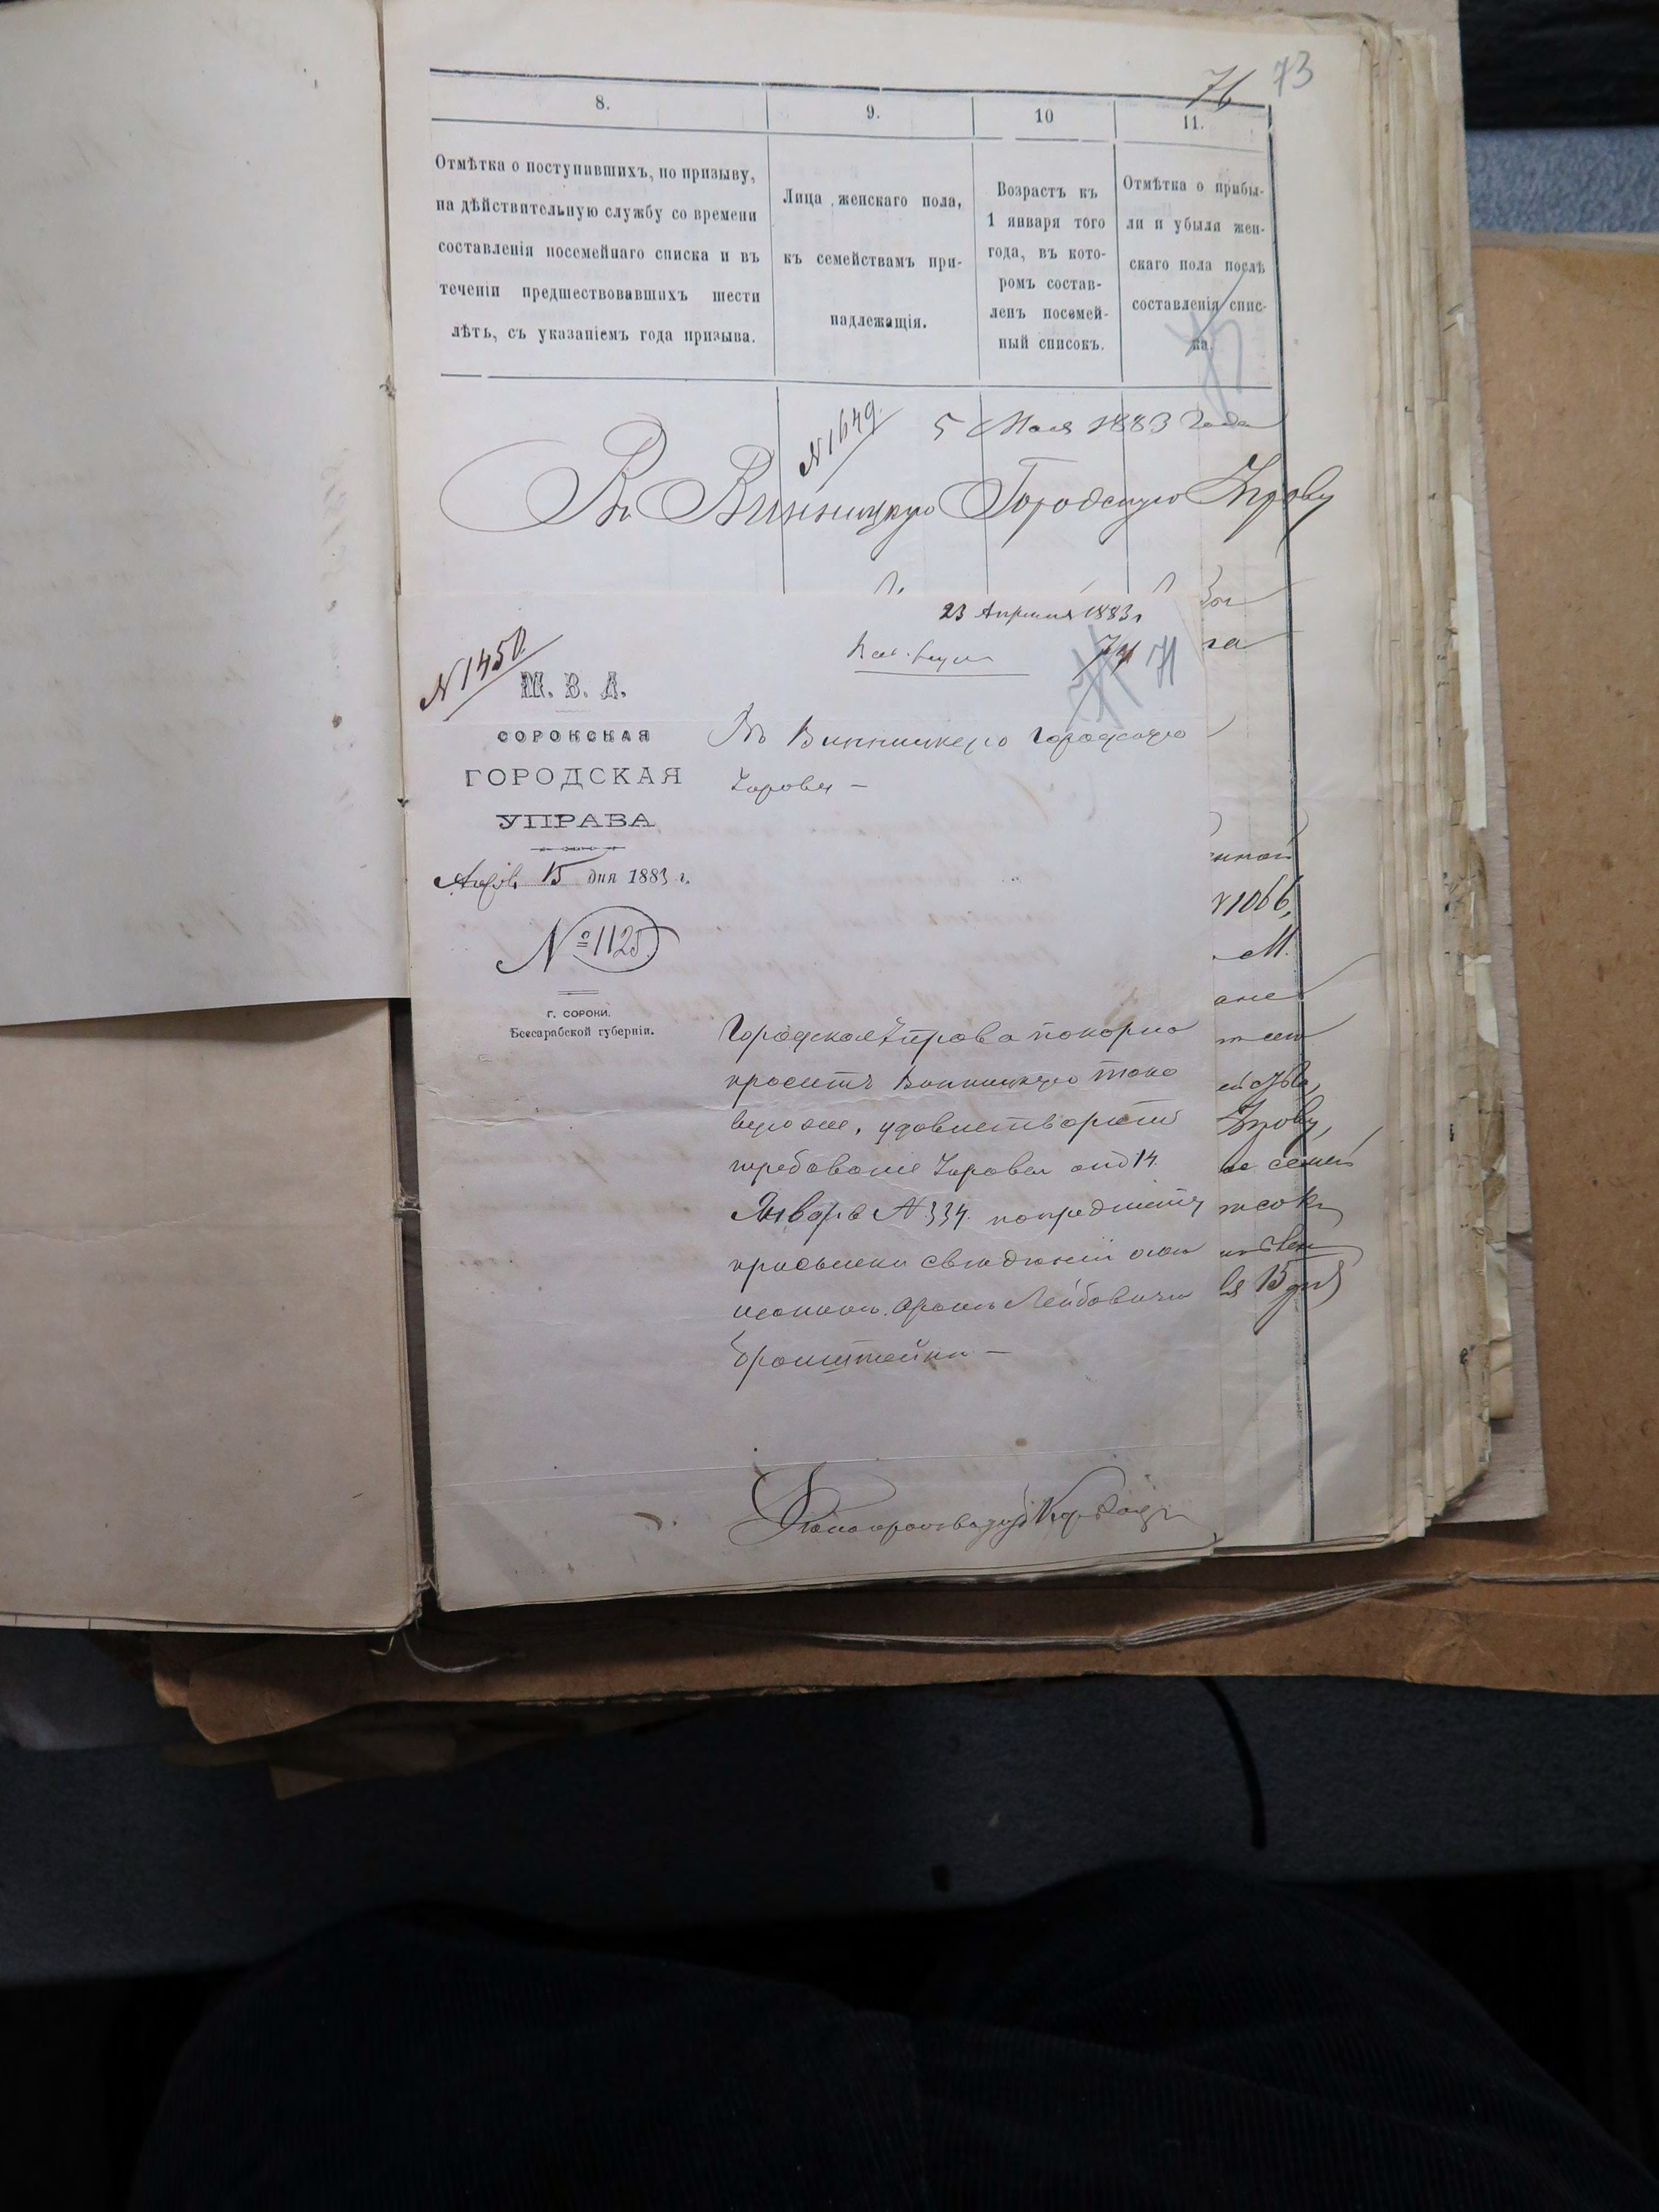 76 73
8.
9.
10
11.
Отмѣтка о поступившихъ, по призыву,
на дѣйствительную службу со времени
составленія посемейнаго списка и въ
теченіи предшествовавшихъ шести
лѣтъ, съ указаніемъ года призыва.
Лица женскаго пола,
къ семействамъ при-
надлежащія.
Возрастъ къ
1 января того
года, въ кото-
ромъ состав-
ленъ посемей-
ный списокъ.
Отмѣтка о прибы-
ли и убыли жен-
скаго пола послѣ
составленія спис-
ка.
№ 1649.
5 Мая 1883 Года
Въ Винницкую Городскую Управу
23 Апреля 1883 г
№ 1450.
74 71
М. В. Д.
СОРОКСКАЯ
ГОРОДСКАЯ
УПРАВА
Апрѣля 15 дня 1883 г.
№ 1125.
Г. СОРОКИ.
Бессарабской губерніи.
Въ Винницкую Городскую
Управу –
Городская Управа покорно
проситъ Винницкую тако
вую же, удовлетворить
требованіе Управы отъ 14.
Января № 334. по предмету
присылки свѣдѣній
Лейбовичи
Бронштейна –
№ 1066,
М.
Управу,
семей
15 дня